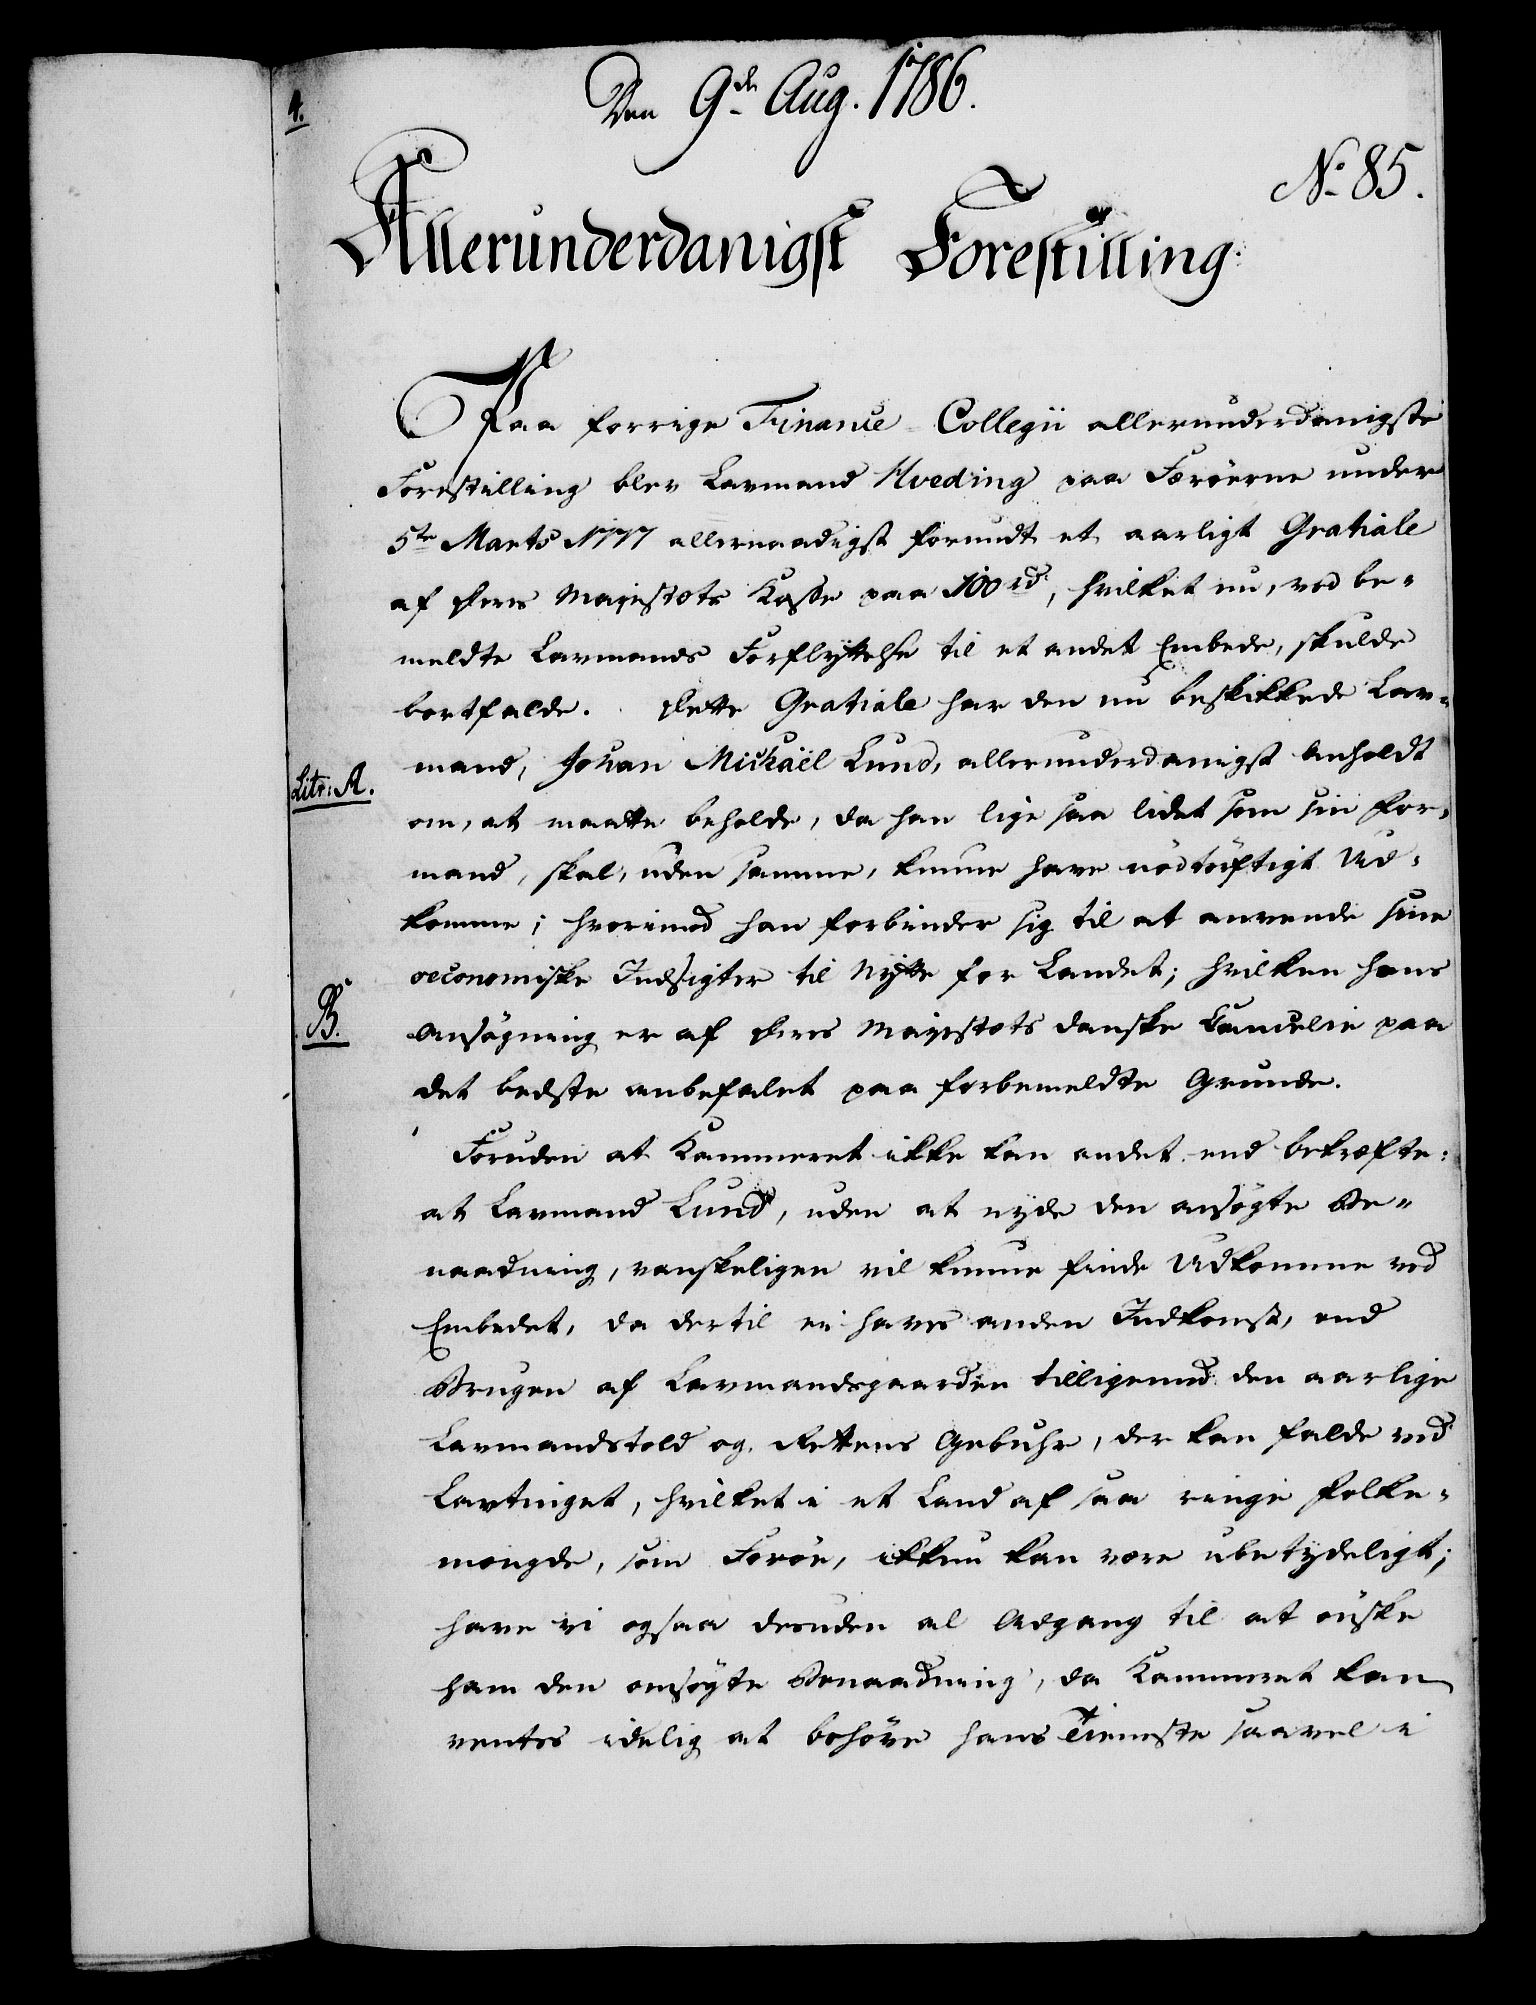 4.
Den 9de Aug. 1786.
No. 85.
Allerunderdanigst Forestilling:
Paa forrige Finance-Collegii allerunderdanigste
Forestilling blev Lavmand Hveding paa Færöerne under
5te Marts 1777 allernaadigst forundt et aarligt Gratiale
af Deres Majestæts Kasse paa 100 rd., hvilket nu, ved be-
meldte Lavmands Forflyttelse til et andet Embede, skulde
bortfalde. Dette Gratiale har den nu beskikkede Lav-
Litr: A.
mand, Johan Michaël Lund, allerunderdanigst anholdt
om, at maatte beholde, da han lige saa lidet som sin For-
mand, skal, uden samme, kunne have nödtörftigt Ud-
komme; hvorimod han forbinder sig til at anvende sine
oeconomiske Indsigter til Nytte for Landet; hvilken hans
B.
Ansögning er af Deres Majestæts danske Cancelie paa
det bedste anbefalet paa forbemeldte Grunde.
Foruden at Kammeret ikke kan andet end bekræfte:
at Lavmand Lund, uden at nyde den ansögte Be-
naadning, vanskeligen vil kunne finde Udkomme ved
Embedet, da dertil ei haves anden Indkomst, end
Brugen af Lavmandsgaarden tilligemed den aarlige
Lavmandstold og Rettens Gebuhr, der kan falde ved
Lavtinget, hvilket i et Land af saa ringe Folke-
mængde, som Færöe, ikkun kan være ubetydeligt;
have vi ogsaa desuden al Adgang til at önske
ham den ansögte Benaadning, da Kammeret kan
ventes idelig at behöve hans Tieneste saavel i